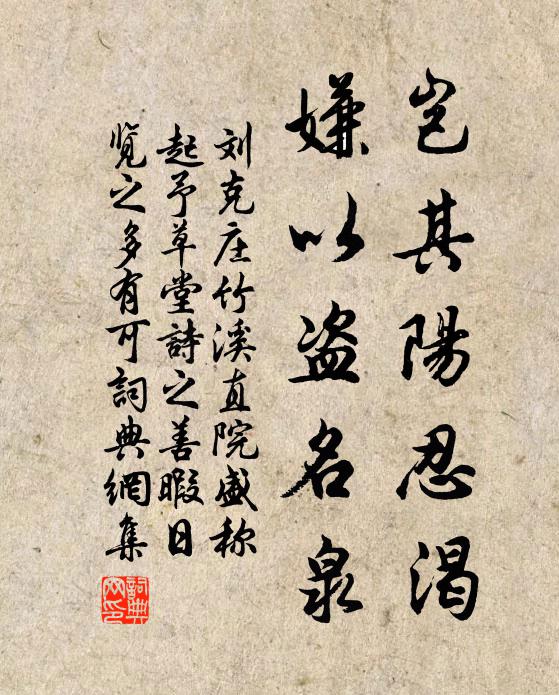 岂其陽忍渴
嫌以盗名泉
刘克庄竹溪直院盛称
起予草堂詩之善暇日
覽之多有可詞典網集
詞典
网印